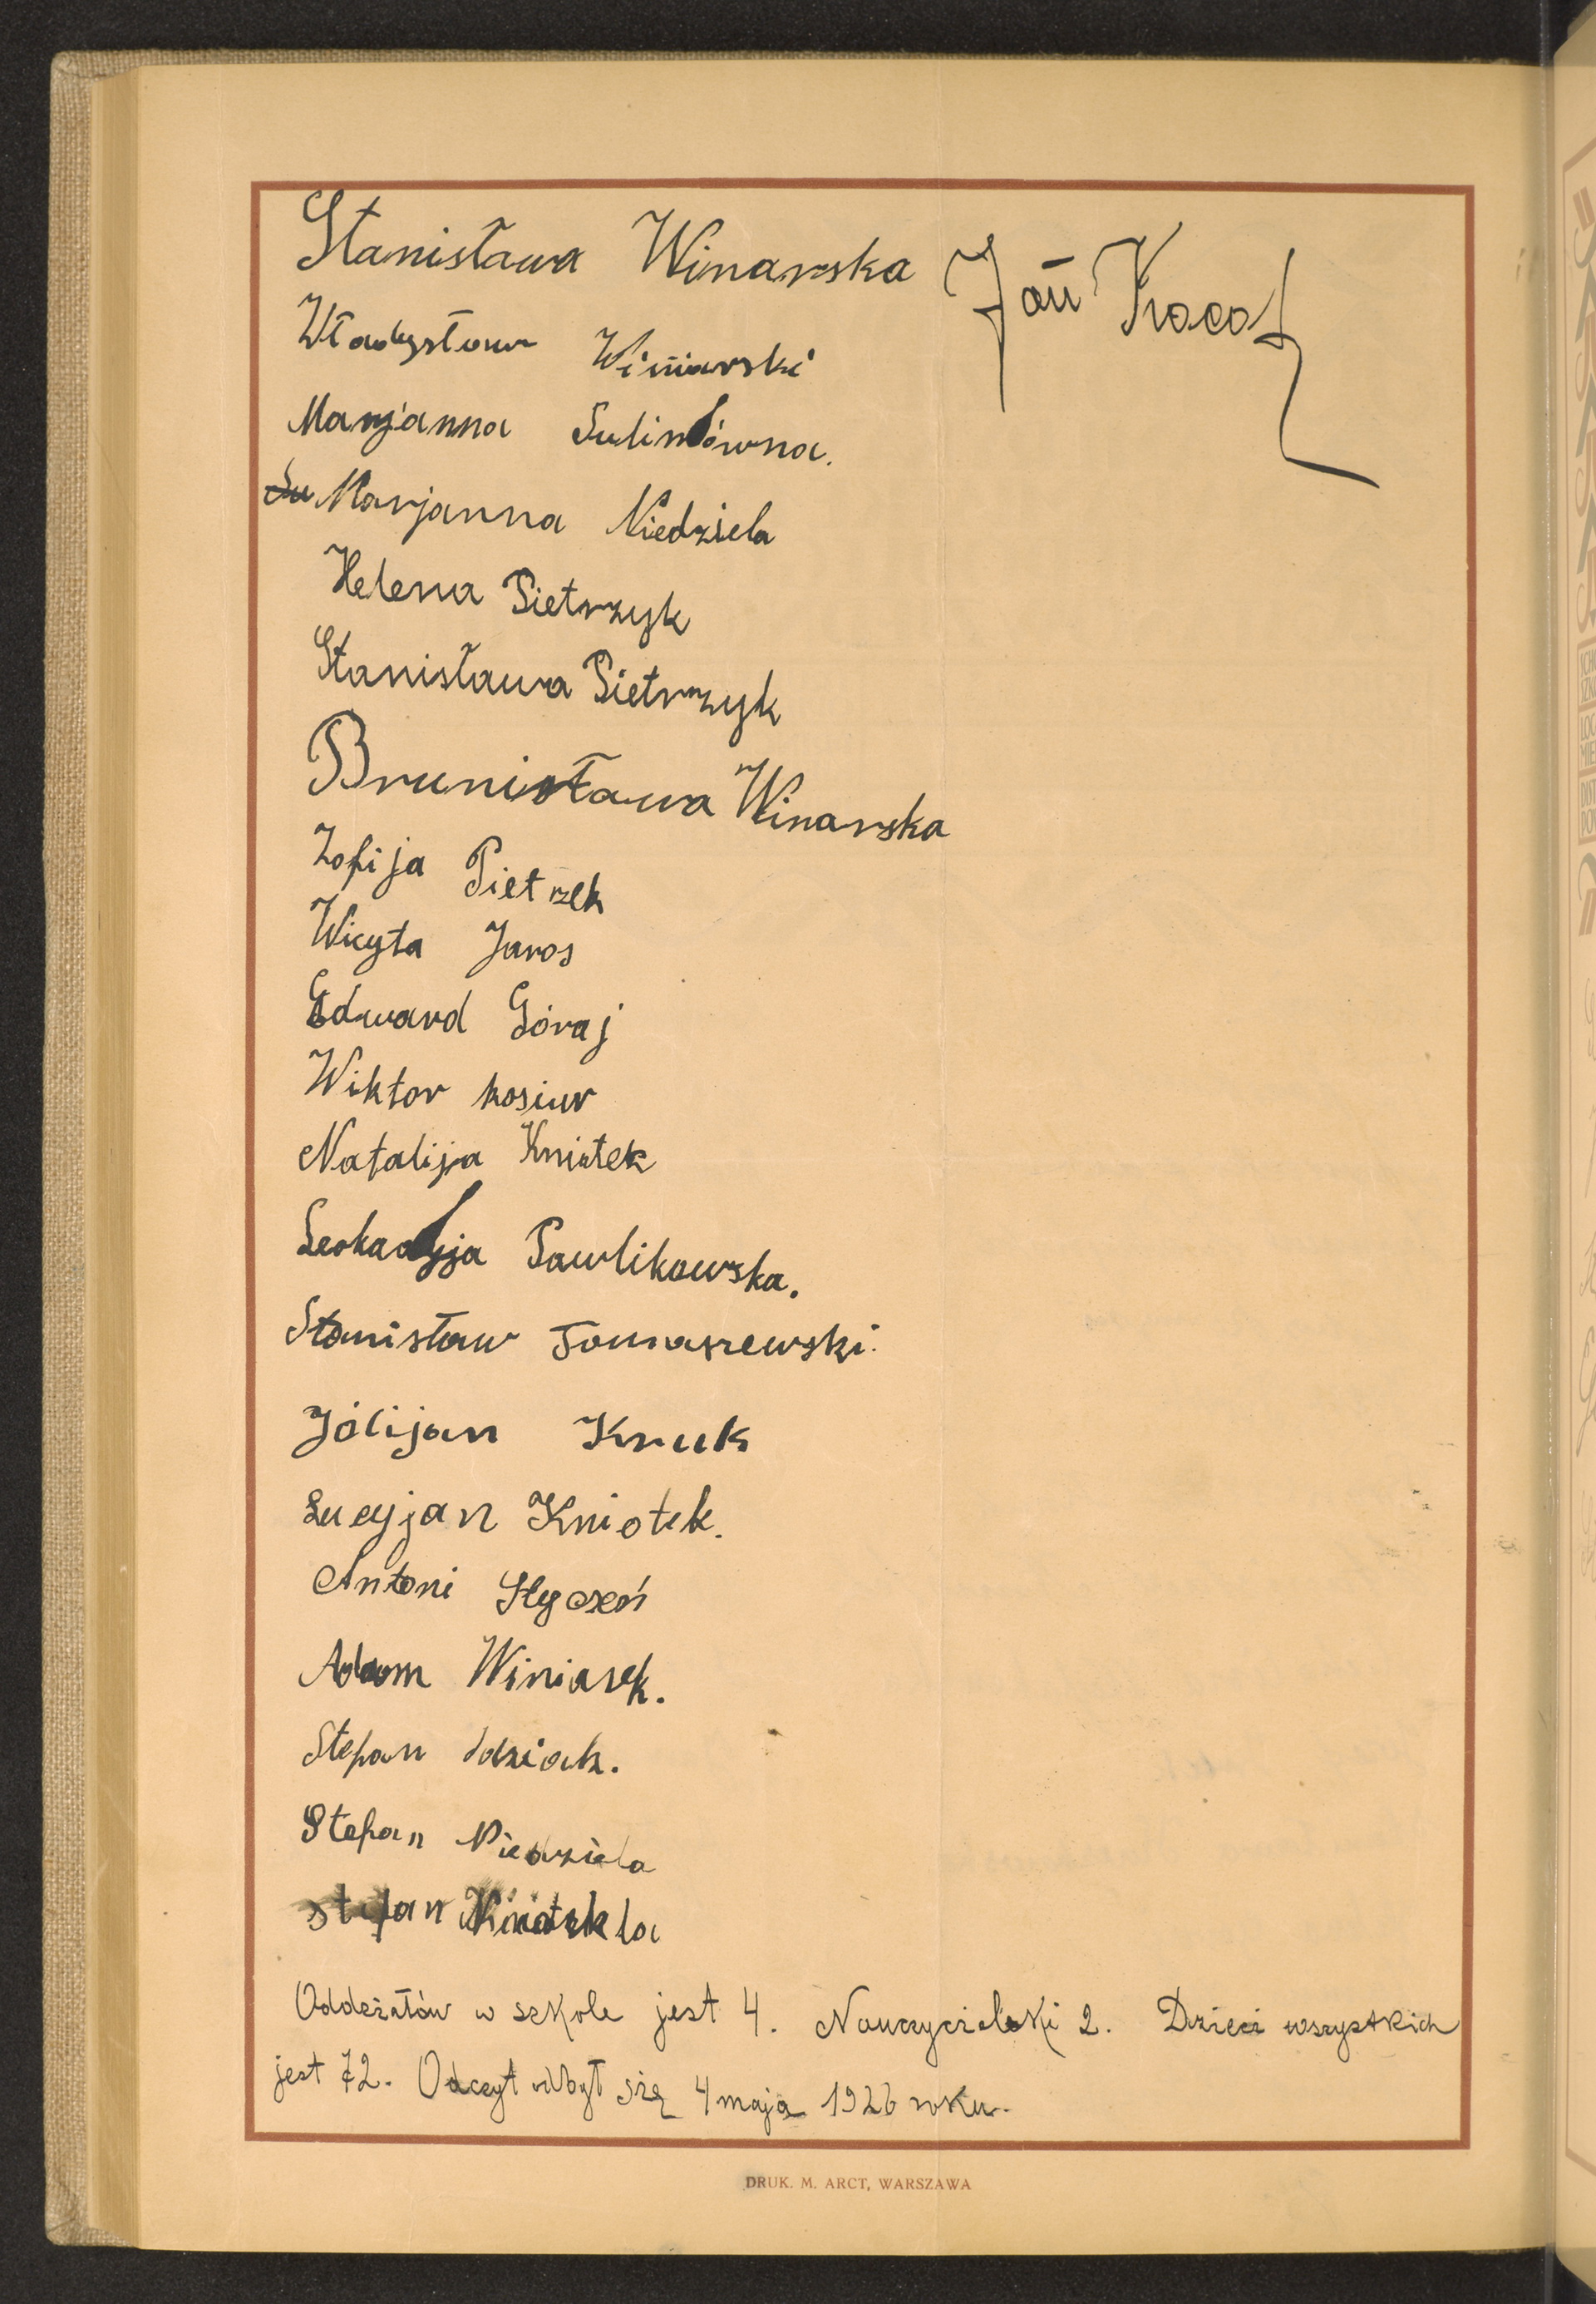 Stanisława Winarska
Jań Kacał
Władysław Winiarski
Marjanna Sulimówna.
Su Marjanna Niedziela
Helena Pietrzyk
Stanisława Pietrzyk
Brunisława Winarska
Zofija Pietrzek
Wicyta Jaros
Edward Góraj
Wiktor kosiur
Natalija Kniotek
Leokadyja Pawlikowska.
Stanisław Tomaszewski.
Jólijan Kruk
Lucyjan Kniotek.
Antoni Styczeń
Adam Winiarek.
Stefan Idziak.
Stefan Niedziela
stefan Kniotek la
Oddziałów w szkole jest 4. Nauczycielski 2. Dzieci wszystkich
jest 72. Odczyt odbył się 4 maja 1926 roku.
DRUK. M. ARCT, WARSZAWA